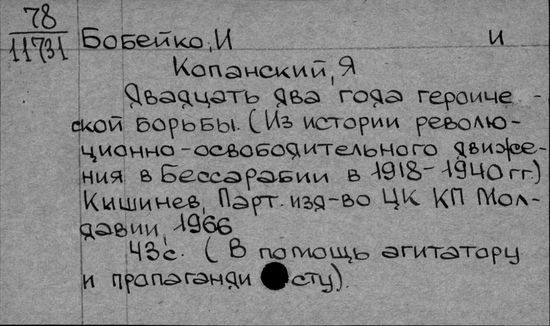 78
11731
Бобейко, И и
Копанский, Я
Двадцать два года героиче-
ской борьбы. (Из истории револю-
ционно-освободительного движе-
ния в Бессарабии в 1918-1940 гг.)
Кишинев, Парт. изд-во ЦК КП Мол-
давии, 1966
43с. (В помощь агитатору
и пропаганди сту).